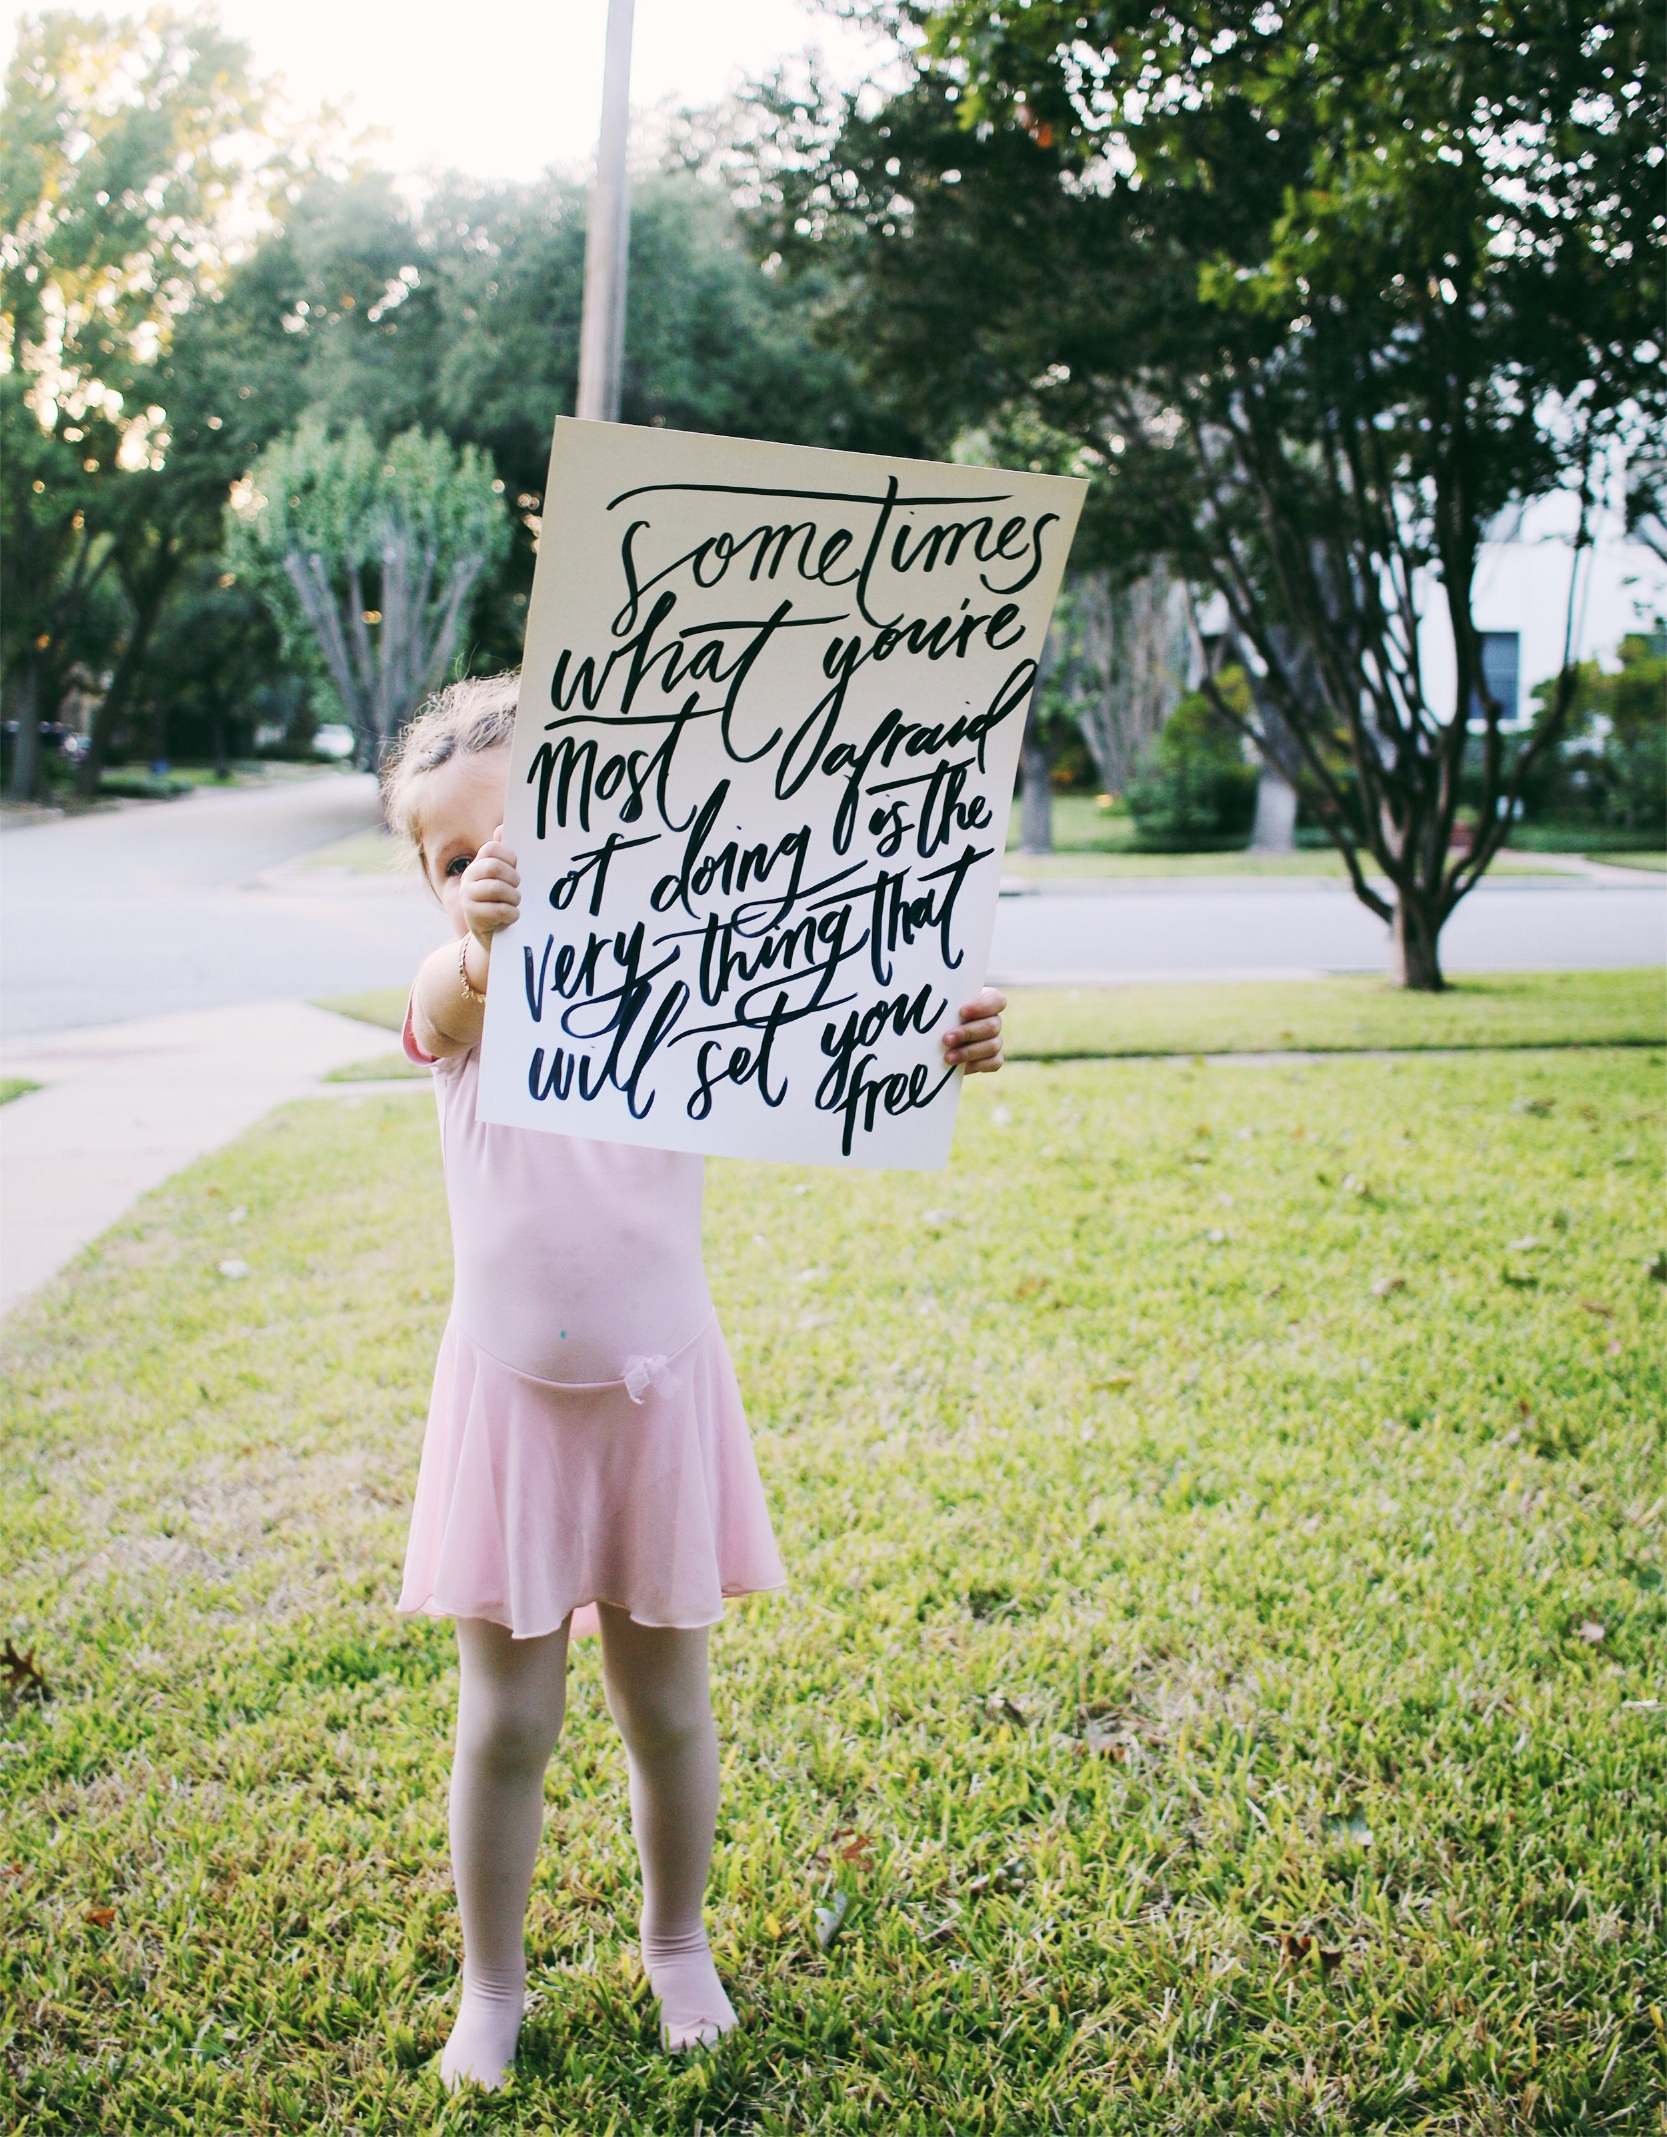 sometimes
what you're
most afraid
of doing is the
very thing that
will set you
free